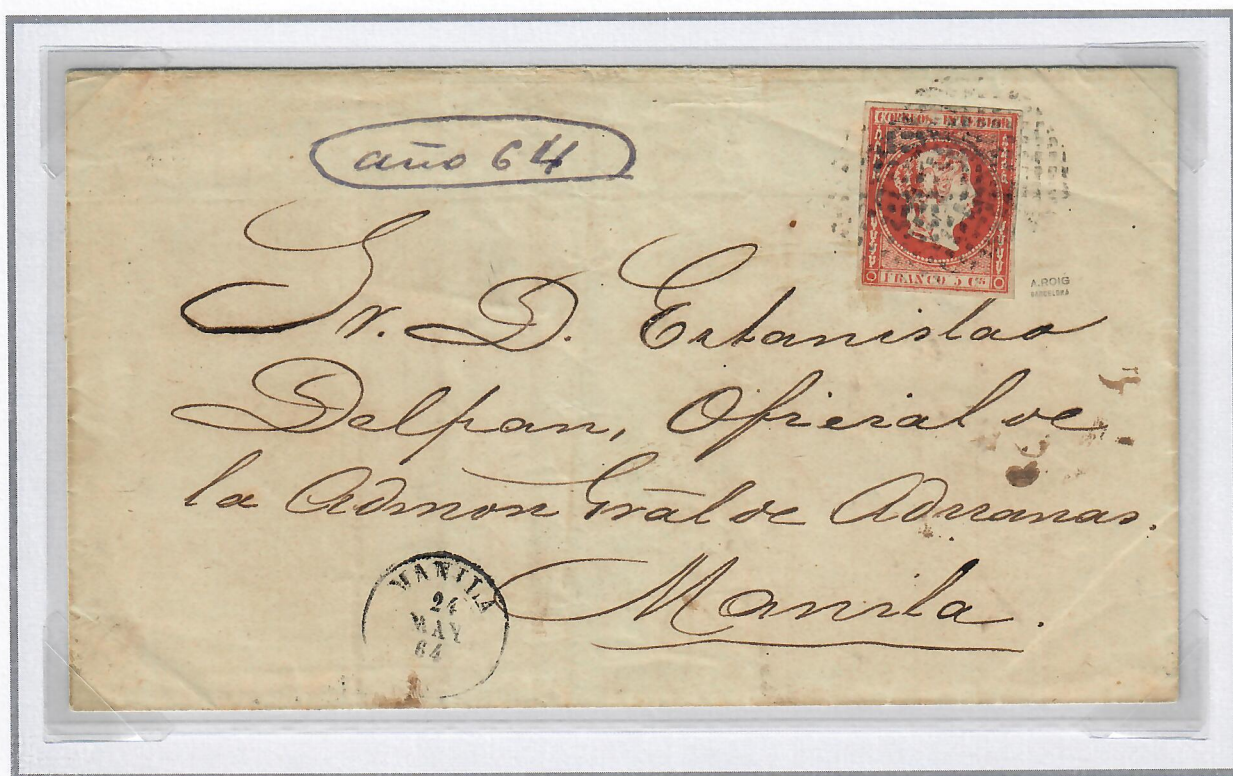 año 64
CORREOS INTERIOR
FRANCO 5 Cs
A.ROIG
BARCELONA
Sr. D. Estanislao
Delpan, Oficial de
la Admon Gral de Aduanas.
Manila.
MANILA
24
MAY
64